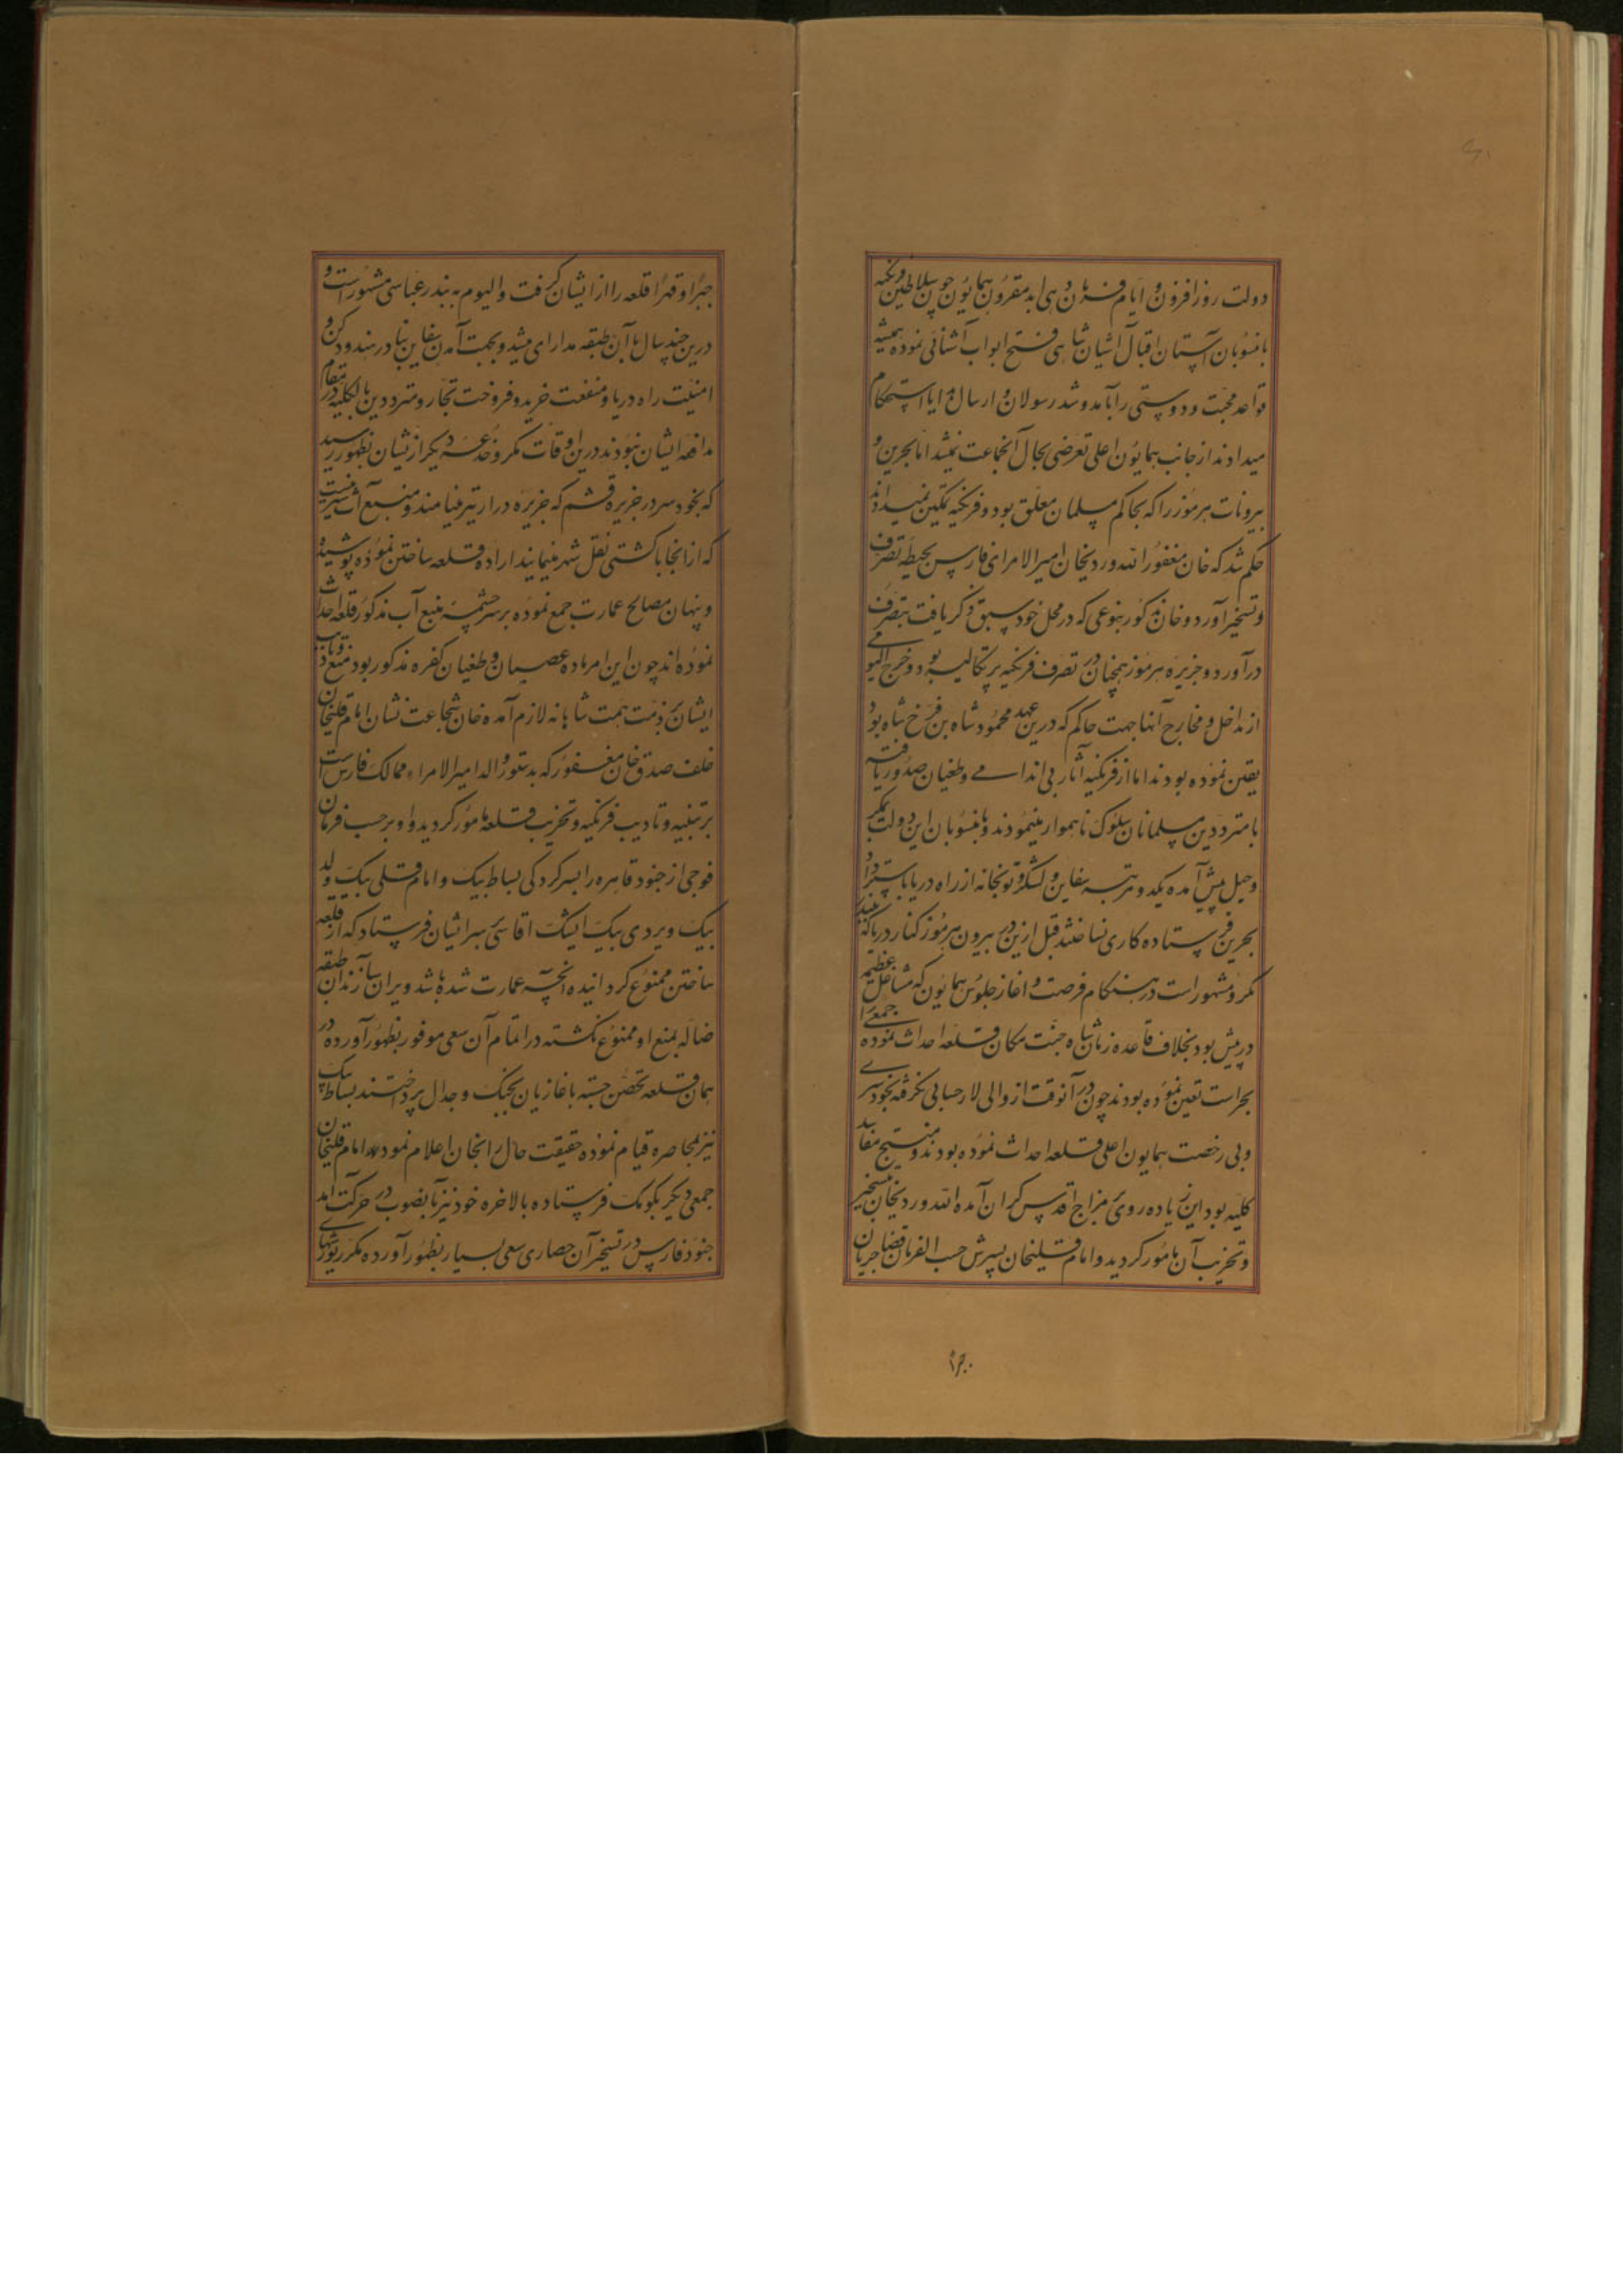 دولت روز افزون و ایام فرمان دهی ابد مقرون همایون چون سلاطین فرنکیه
با منسوبان آستان اقبال آشیان شاهی فتح ابواب آشنائی نموده همیشه
قواعد محبت و دوستی را بآمد و شد رسولان و ارسال هدایا استحکام
میدادند از جانب همایون اعلی تعرضی بحال آنجماعت نمیشد اما بحرین و
بیرونات هرموز را که بحاکم مسلمان معلق بود و فرنکیه تمکین نمیدادند
حکم شد که خان مغفور الله وردیخان امیر الامرای فارس بحیطه تصرف
و تسخیر آورد و خان مذکور بنوعی که در محل خود سبق ذکر یافت بتصرف
درآورد و جزیره هرموز همچنان در تصرف فرنکیه پرتکالیه بود و خرج الیومی
از مداخل و مخارج آنها جهت حاکم که درین عهد محمود شاه بن فرخ شاه بود
یقین نموده بودند اما از فرنکیه آثار بی اندامی و طغیان صدور یافته
با مترددین مسلمانان سلوک ناهموار مینمودند و با منسوبان این دولت بمکر
و حیل پیش آمده یکدو مرتبه سفاین و لشکر و توپخانه از راه دریا باسترداد
بحرین فرستاده کاری نساختند قبل ازین در بیرون هرموز کنار دریا که ببندر
کمرو مشهور است در هنکام فرصت و اغاز جلوس همایون که مشاغل عظیمه
در پیش بود بخلاف قاعده زمان شاه جنت مکان قلعه احداث نموده جمعی را
بحراست تعین نموده بودند چون در آنوقت از والی لار حسابی نکرفته بخودسری
و بی رخصت همایون اعلی قلعه احداث نموده بودند و منتج مفاسد
کلیه بود این زیاده روی بر مزاج اقدس کران آمده الله وردیخان بتسخیر
و تخریب آن مامور کردید و امام قلیخان پسرش حسب الفرمان قضا جریان
جبرا و قهرا قلعه را از ایشان کرفت و الیوم به بندر عباسی مشهور است و
درین چند سال با آن طبقه مدارای میشد و بجهت آمدن سفاین بنادر هند و دکن و
امنیت راه دریا و منفعت خرید و فروخت تجار و مترددین بالکلیه در مقام
مدافعه ایشان نبودند درین اوقات مکر و خدعه دیکر از ایشان بظهور رسید
که بخود سر در جزیره قشم که جزیره دراز نیز مینامند و منبع آب شیرینست
که از انجا با کشتی نقل شهر مینمایند اراده قلعه ساختن نموده پوشیده
و پنهان مصالح عمارت جمع نموده بر سر چشمه منبع آب مذکور قلعه احداث
نموده اند چون این امر ماده عصیان و طغیان کفره مذکور بود منع و تادیب
ایشان بر ذمت همت شاهانه لازم آمده خان شجاعت نشان امام قلیخان
خلف صدق خان مغفور که بدستور والد امیر الامراء ممالک فارس است
بر تنبیه و تادیب فرنکیه و تخریب قلعه مامور کردید و او بر حسب فرمان
فوجی از جنود قاهره را بسرکردکی بساط بیک و امام قلی بیک ولد
بیک ویردی بیک ایشک اقاسی بسر ایشان فرستاد که از قلعه
ساختن ممنوع کردانیده انچه عمارت شده باشد ویران سازند آن طبقه
ضاله بمنع او ممنوع نکشته در اتمام آن سعی موفور بظهور آورده در
همان قلعه تحصن جسته با غازیان بجنک و جدال پرداختند بساط بیک
نیز بمحاصره قیام نموده حقیقت حال را بخان اعلام نمود و امام قلیخان
جمعی دیکر بکومک فرستاده بالاخره خود نیز بآنصوب در حرکت آمد
جنود فارس در تسخیر آن حصاری سعی بسیار بظهور آورده مکرر یورشهای